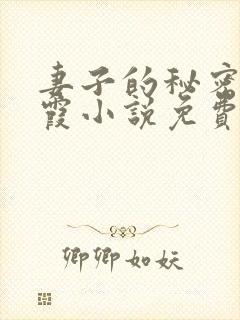 妻子的秘密
霞小说免费
卿卿如妖